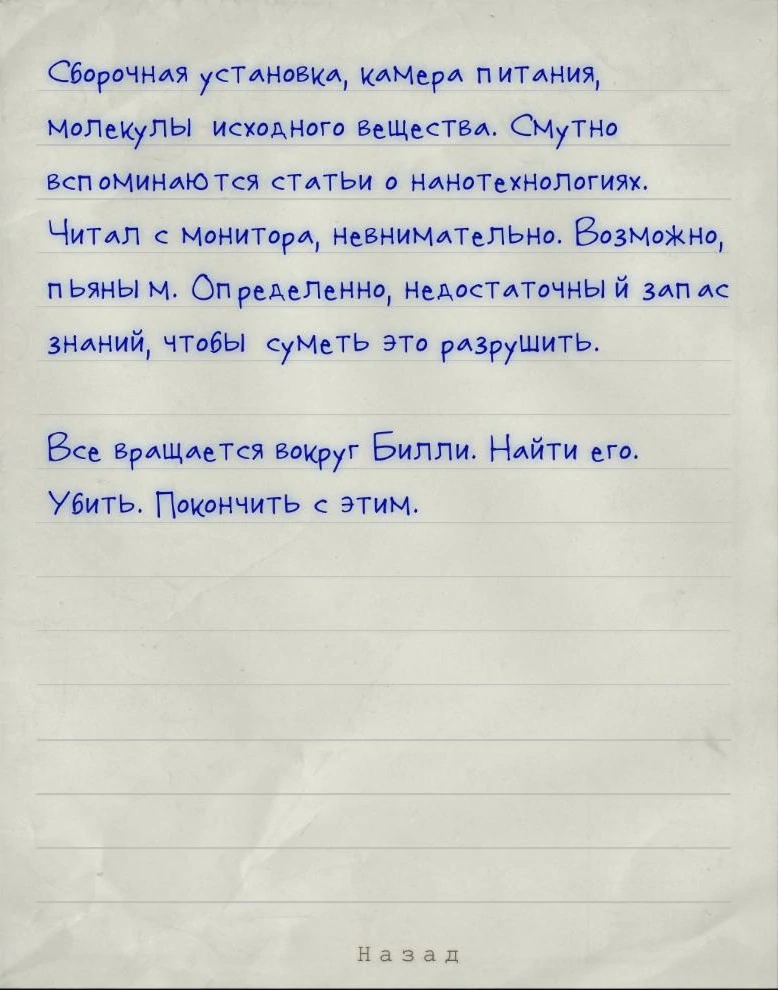 Сборочная установка, камера питания,
молекулы исходного вещества. Смутно
вспоминаются статьи о нанотехнологиях.
Читал с монитора, невнимательно. Возможно,
пьяным. Определенно, недостаточный запас
знаний, чтобы суметь это разрушить.
Все вращается вокруг Билли. Найти его.
Убить. Покончить с этим.
Назад